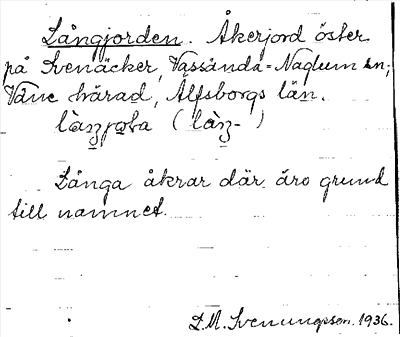 Långjorden. Åkerjord öster
på Svenäcker, Vassända-Naglum sn;
Väne härad, Älfsborgs län.
Långa åkrar där äro grund
till namnet.
D.M. Svenungsson. 1936.